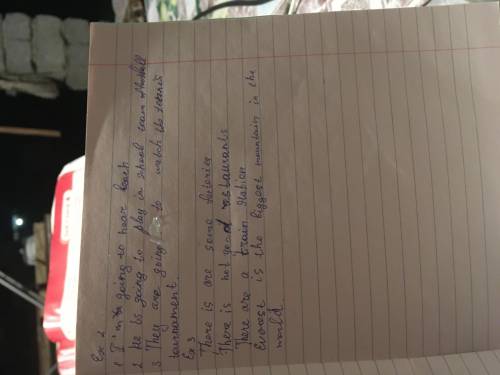 Ex 2
1 I'm going to hear Bach
2 He is going to play in school team
3 They are going to watch the tennis
tournament.
Ex 3
There is are some futeries
There is not good restaurants
There are a train station
Everest is the biggest mountain in the
world